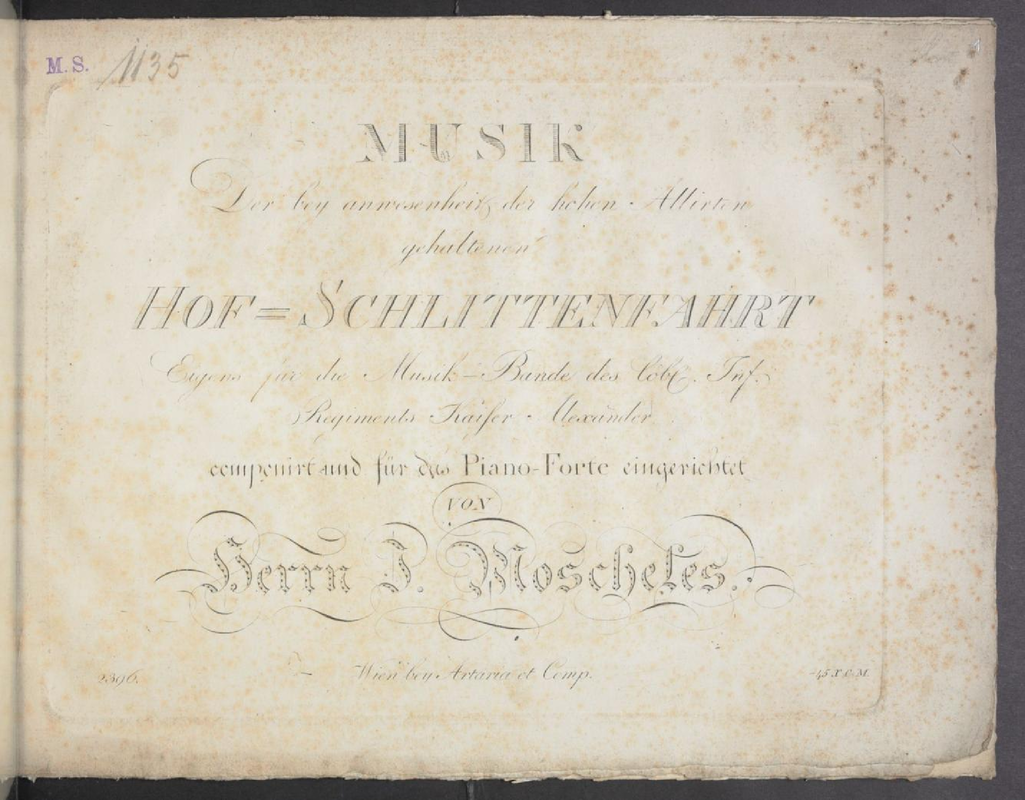 M.S. 1135
MUSIK
Der bey anwesenheit der hohen Allirten
gehaltenen
HOF=SCHLITTENFAHRT
Eigens für die Musik-Bande des löbl. Inf.
Regiments Kaiser Alexander
componirt und für das Piano-Forte eingerichtet
VON
Herrn J. Moscheles.
2396. Wien bey Artaria et Comp. 45 X C.M.